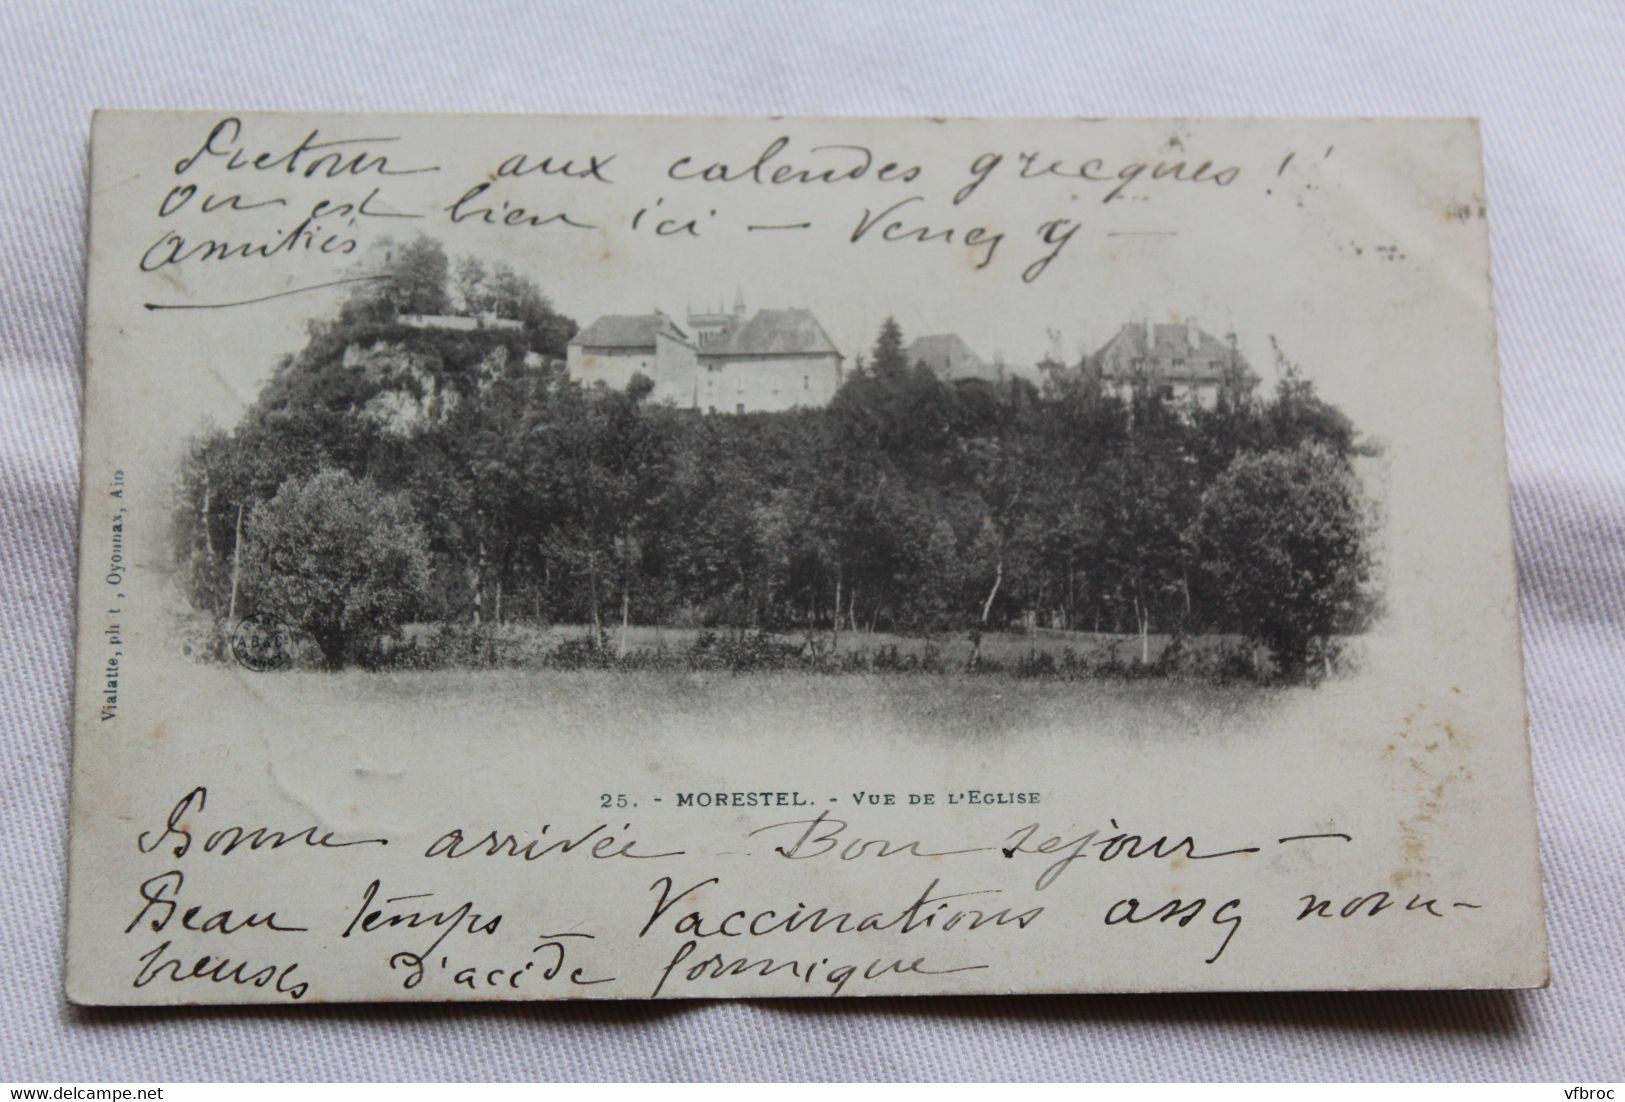 Retour aux calendes grecques !
On est bien ici — Venez y —
Amitiés
Vialatte, phot, Oyonnax, Ain
25. - MORESTEL. - VUE DE L'EGLISE
Bonne arrivée - Bon séjour -
Beau temps - Vaccinations assez nom-
breuses d'acide formique
www.delcampe.net
vfbroc